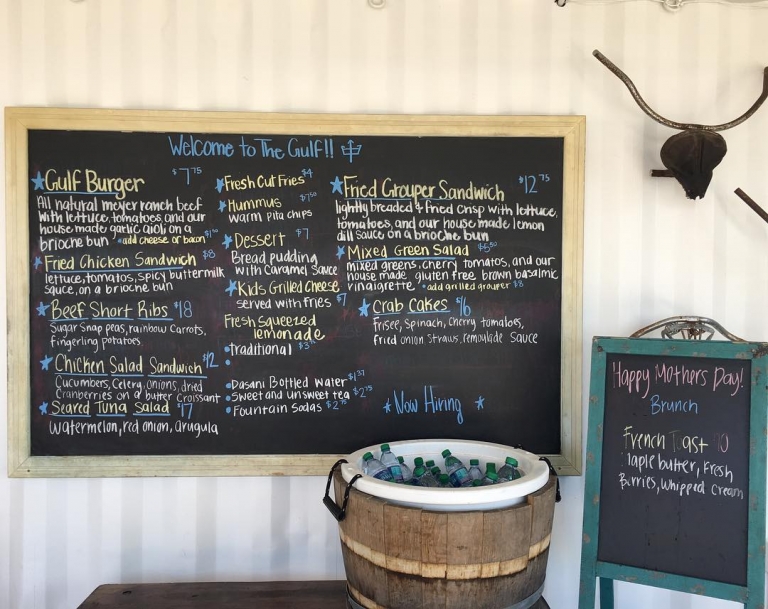 Welcome to The Gulf!!
Gulf Burger $7.75
All natural meyer ranch beef
with lettuce, tomatoes, and our
house made garlic aioli on a
brioche bun *add cheese or bacon
Fried Chicken Sandwich $8
lettuce, tomatos, spicy buttermilk
sauce, on a brioche bun
Beef Short Ribs $18
Sugar snap peas, rainbow carrots,
fingerling potatoes
Chicken Salad Sandwich $12
Cucumbers, Celery, onions, dried
Cranberries on a butter croissant
Seared Tuna Salad $17
watermelon, red onion, arugula
Fresh Cut Fries $4
Hummus $7.50
warm pita chips
Dessert $7
Bread pudding
with Caramel Sauce
Kids Grilled Cheese
served with fries $7
Fresh squeezed
lemonade
traditional
Dasani Bottled Water $1.37
Sweet and unsweet tea $2.75
Fountain Sodas
Fried Grouper Sandwich $12.75
lightly breaded & fried crisp with lettuce,
tomatoes, and our house made lemon
dill sauce on a brioche bun
Mixed Green Salad $5.50
mixed greens, cherry tomatos, and our
house made gluten free brown balsamic
vinaigrette *add grilled grouper $8
Crab Cakes $16
Frisee, Spinach, Cherry tomatoes,
fried onion straws, remoulade sauce
* Now Hiring *
Happy Mothers Day!
Brunch
French Toast 10
Maple butter, Fresh
Berries, Whipped Cream